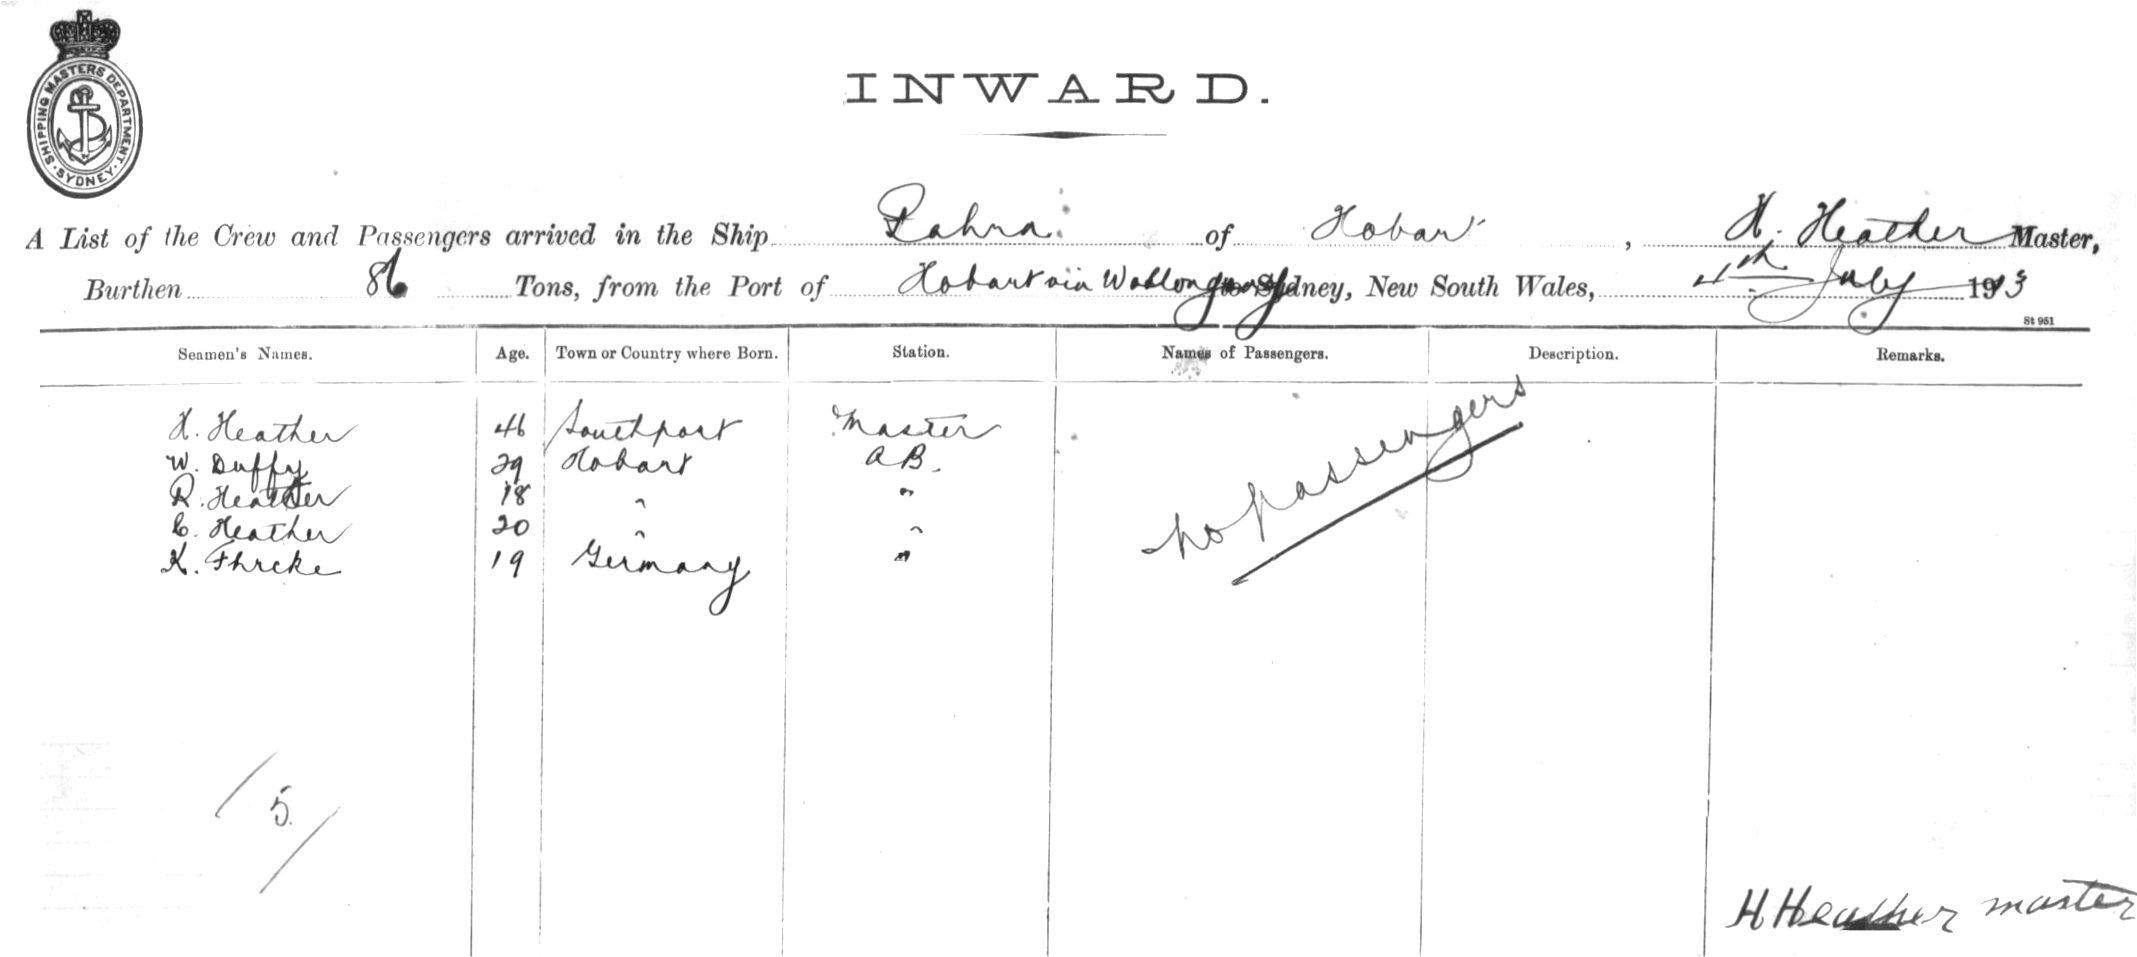 SHIPPING MASTERS DEPARTMENT. SYDNEY.
INWARD.
A List of the Crew and Passengers arrived in the Ship of Hobart, H. Heather Master,
Burthen 86 Tons, from the Port of Hobart via Wollongong to Sydney, New South Wales, 4th July 1913
St 951
Seamen's Names. Age. Town or Country where Born. Station. Names of Passengers. Description. Remarks.
H. Heather 46 Southport Master
W. Duffy 29 Hobart AB.
R. Heather 18 " "
C. Heather 20 " "
K. 19 Germany "
no passengers
5.
H Heather master